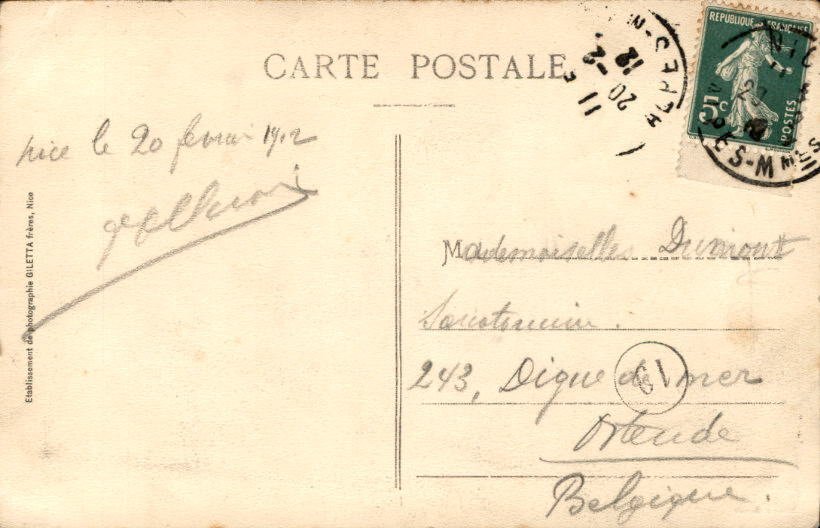 CARTE POSTALE
REPUBLIQUE FRANÇAISE
5c
POSTES
11
20-2
12
ALPES-M
Nice le 20 février 1912
Etablissement de photographie GILETTA frères, Nice
Mademoiselles Dumont
Sanatorium.
243, Digue de mer
19
Ostende
Belgique.